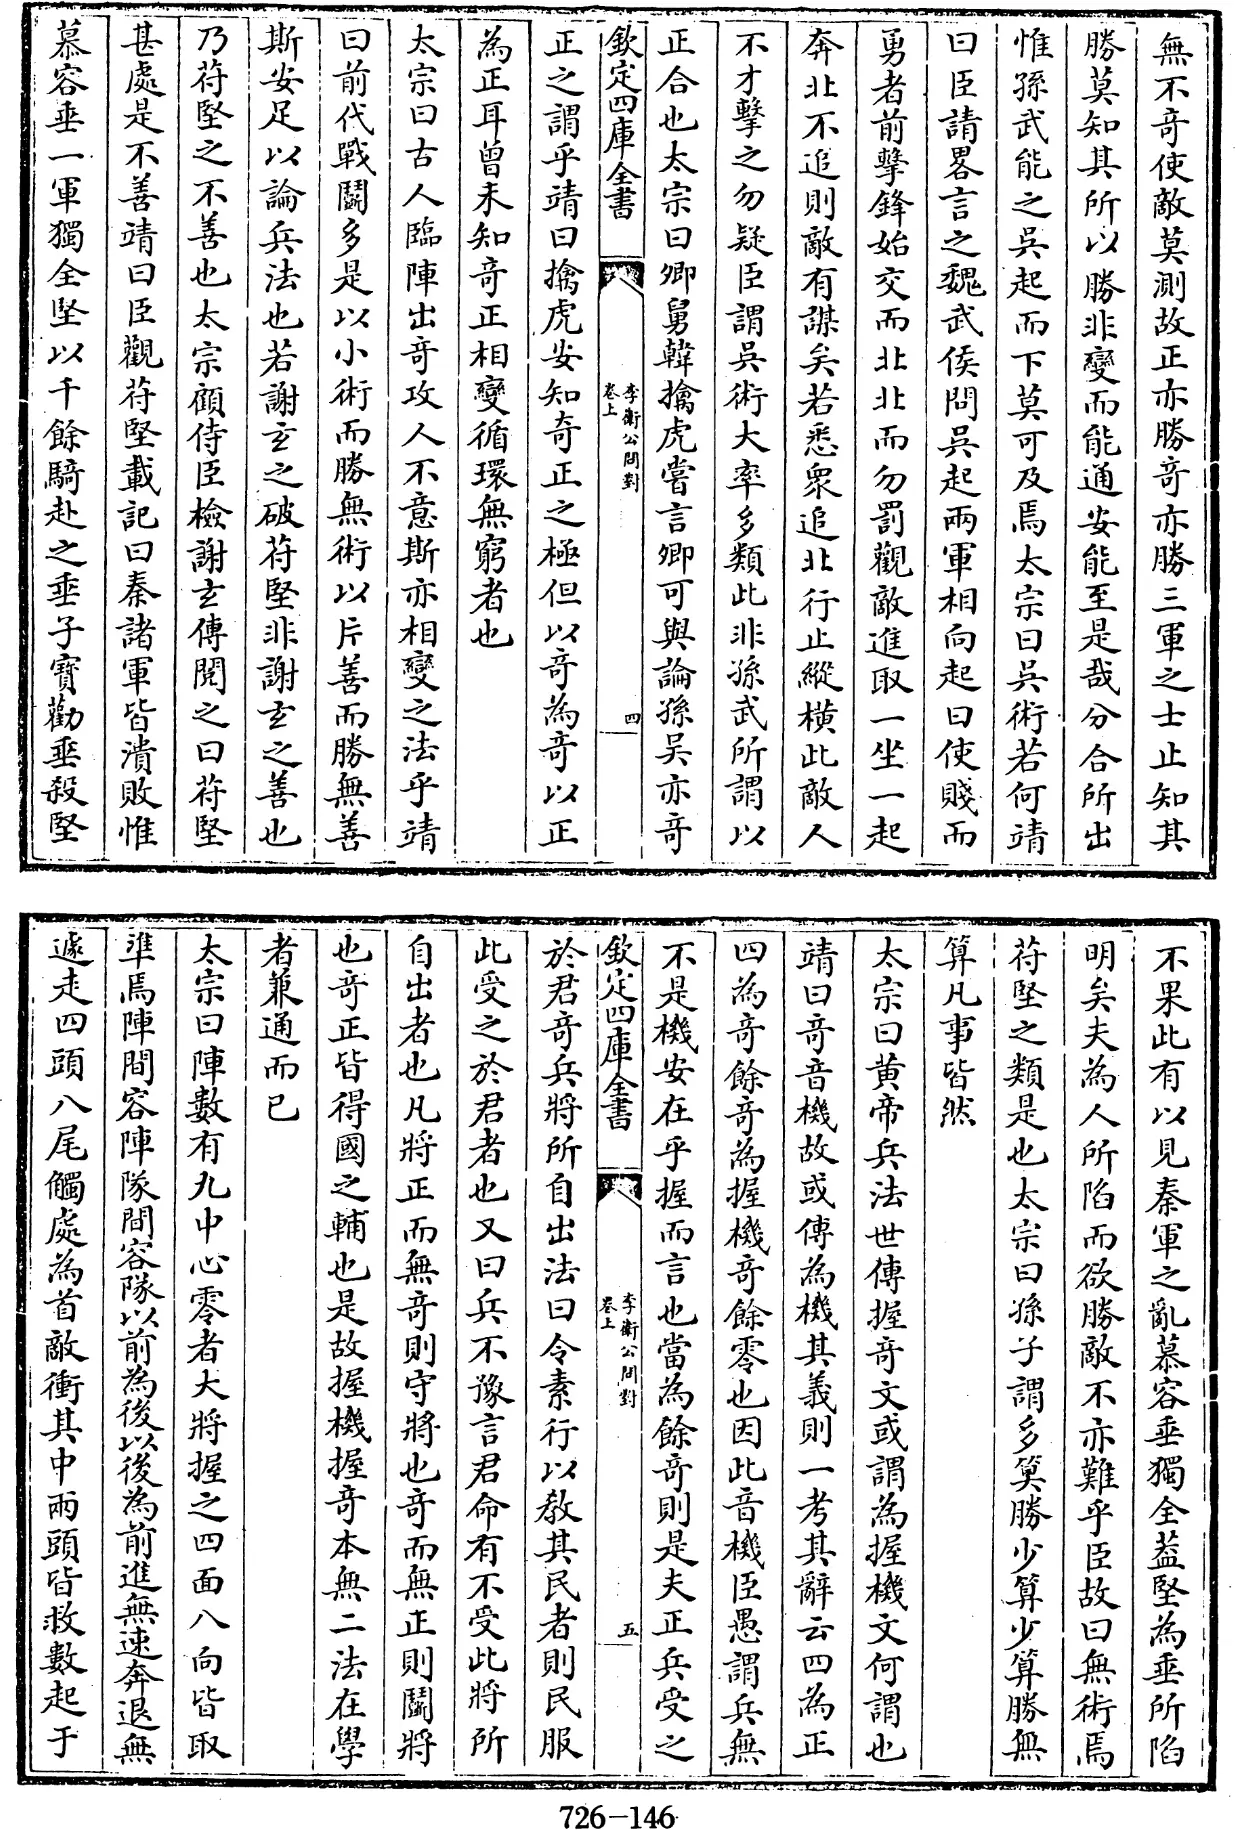 無不奇使敵莫測故正亦勝奇亦勝三軍之士止知其
勝莫知其所以勝非變而能通安能至是哉分合所出
惟孫武能之吳起而下莫可及焉太宗曰吳術若何靖
曰臣請畧言之魏武侯問吳起兩軍相向起曰使賤而
勇者前擊鋒始交而北北而勿罰觀敵進取一坐一起
奔北不追則敵有謀矣若悉衆追北行止縱橫此敵人
不才擊之勿疑臣謂吳術大率多類此非孫武所謂以
正合也太宗曰卿舅韓擒虎嘗言卿可與論孫吳亦奇
欽定四庫全書
李衛公問對
卷上
四
正之謂乎靖曰擒虎安知奇正之極但以奇為奇以正
為正耳曾未知奇正相變循環無窮者也
太宗曰古人臨陣出奇攻人不意斯亦相變之法乎靖
曰前代戰鬭多是以小術而勝無術以片善而勝無善
斯安足以論兵法也若謝玄之破苻堅非謝玄之善也
乃苻堅之不善也太宗顧侍臣檢謝玄傳閱之曰苻堅
甚處是不善靖曰臣觀苻堅載記曰秦諸軍皆潰敗惟
慕容垂一軍獨全堅以千餘騎赴之垂子寶勸垂殺堅
不果此有以見秦軍之亂慕容垂獨全葢堅為垂所陷
明矣夫為人所陷而欲勝敵不亦難乎臣故曰無術焉
苻堅之類是也太宗曰孫子謂多算勝少算少算勝無
算凡事皆然
太宗曰黄帝兵法世傳握奇文或謂為握機文何謂也
靖曰奇音機故或傳為機其義則一考其辭云四為正
四為奇餘奇為握機奇餘零也因此音機臣愚謂兵無
不是機安在乎握而言也當為餘奇則是夫正兵受之
欽定四庫全書
李衛公問對
卷上
五
於君奇兵將所自出法曰令素行以教其民者則民服
此受之於君者也又曰兵不豫言君命有不受此將所
自出者也凡將正而無奇則守將也奇而無正則鬭將
也奇正皆得國之輔也是故握機握奇本無二法在學
者兼通而已
太宗曰陣數有九中心零者大將握之四面八向皆取
準焉陣間容陣隊間容隊以前為後以後為前進無速奔退無
遽走四頭八尾觸處為首敵衝其中兩頭皆救數起于
726-146